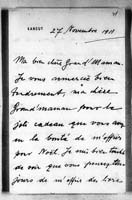 VANSUT 27 Novembre 1911
Ma bien chère Grand'Maman.
Je vous remercie bien
tendrement, ma chère
Grand'maman pour le
joli cadeau que vous
la bonté de m'offrir
pour Noël. Je suis bien touchée
de voir que vous
jours de m'offrir des